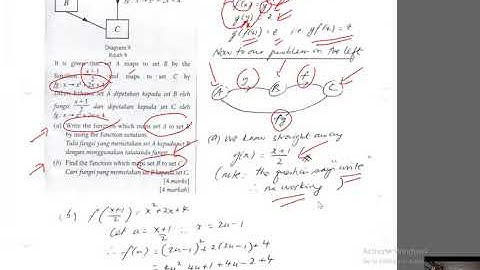 B
C
Diagram 9
Rajah 9
It is given that set A maps to set B by the
function x+1/2 and maps to set C by
fg: x → x² + 2x + 4
Dalam Rajah, set A dipetakan kepada set B oleh
fungsi x+1/2 dan dipetakan kepada set C oleh
fg: x → x² + 2x + 4
(a) Write the function which maps set A to set B
by using the function notation.
Tulis fungsi yang memetakan set A kepada set B
dengan menggunakan tatatanda fungsi.
(b) Find the function which maps set B to set C.
Cari fungsi yang memetakan set B kepada set C.
[4 marks]
[4 markah]
g(y) = z
gf(x) = z i.e. gf(x) = z
Now to our problem on the left
g
f
A
B
C
fg
(a) We know straight away
g(x) = x+1/2
(note: the question says "write"
∴ no working)
(b) f(x+1/2) = x²+2x+4
Let u = x+1/2 ∴ x = 2u-1
∴ f(u) = (2u-1)² + 2(2u-1) + 4
= 4u² - 4u + 1 + 4u - 2 + 4
Activate Windows